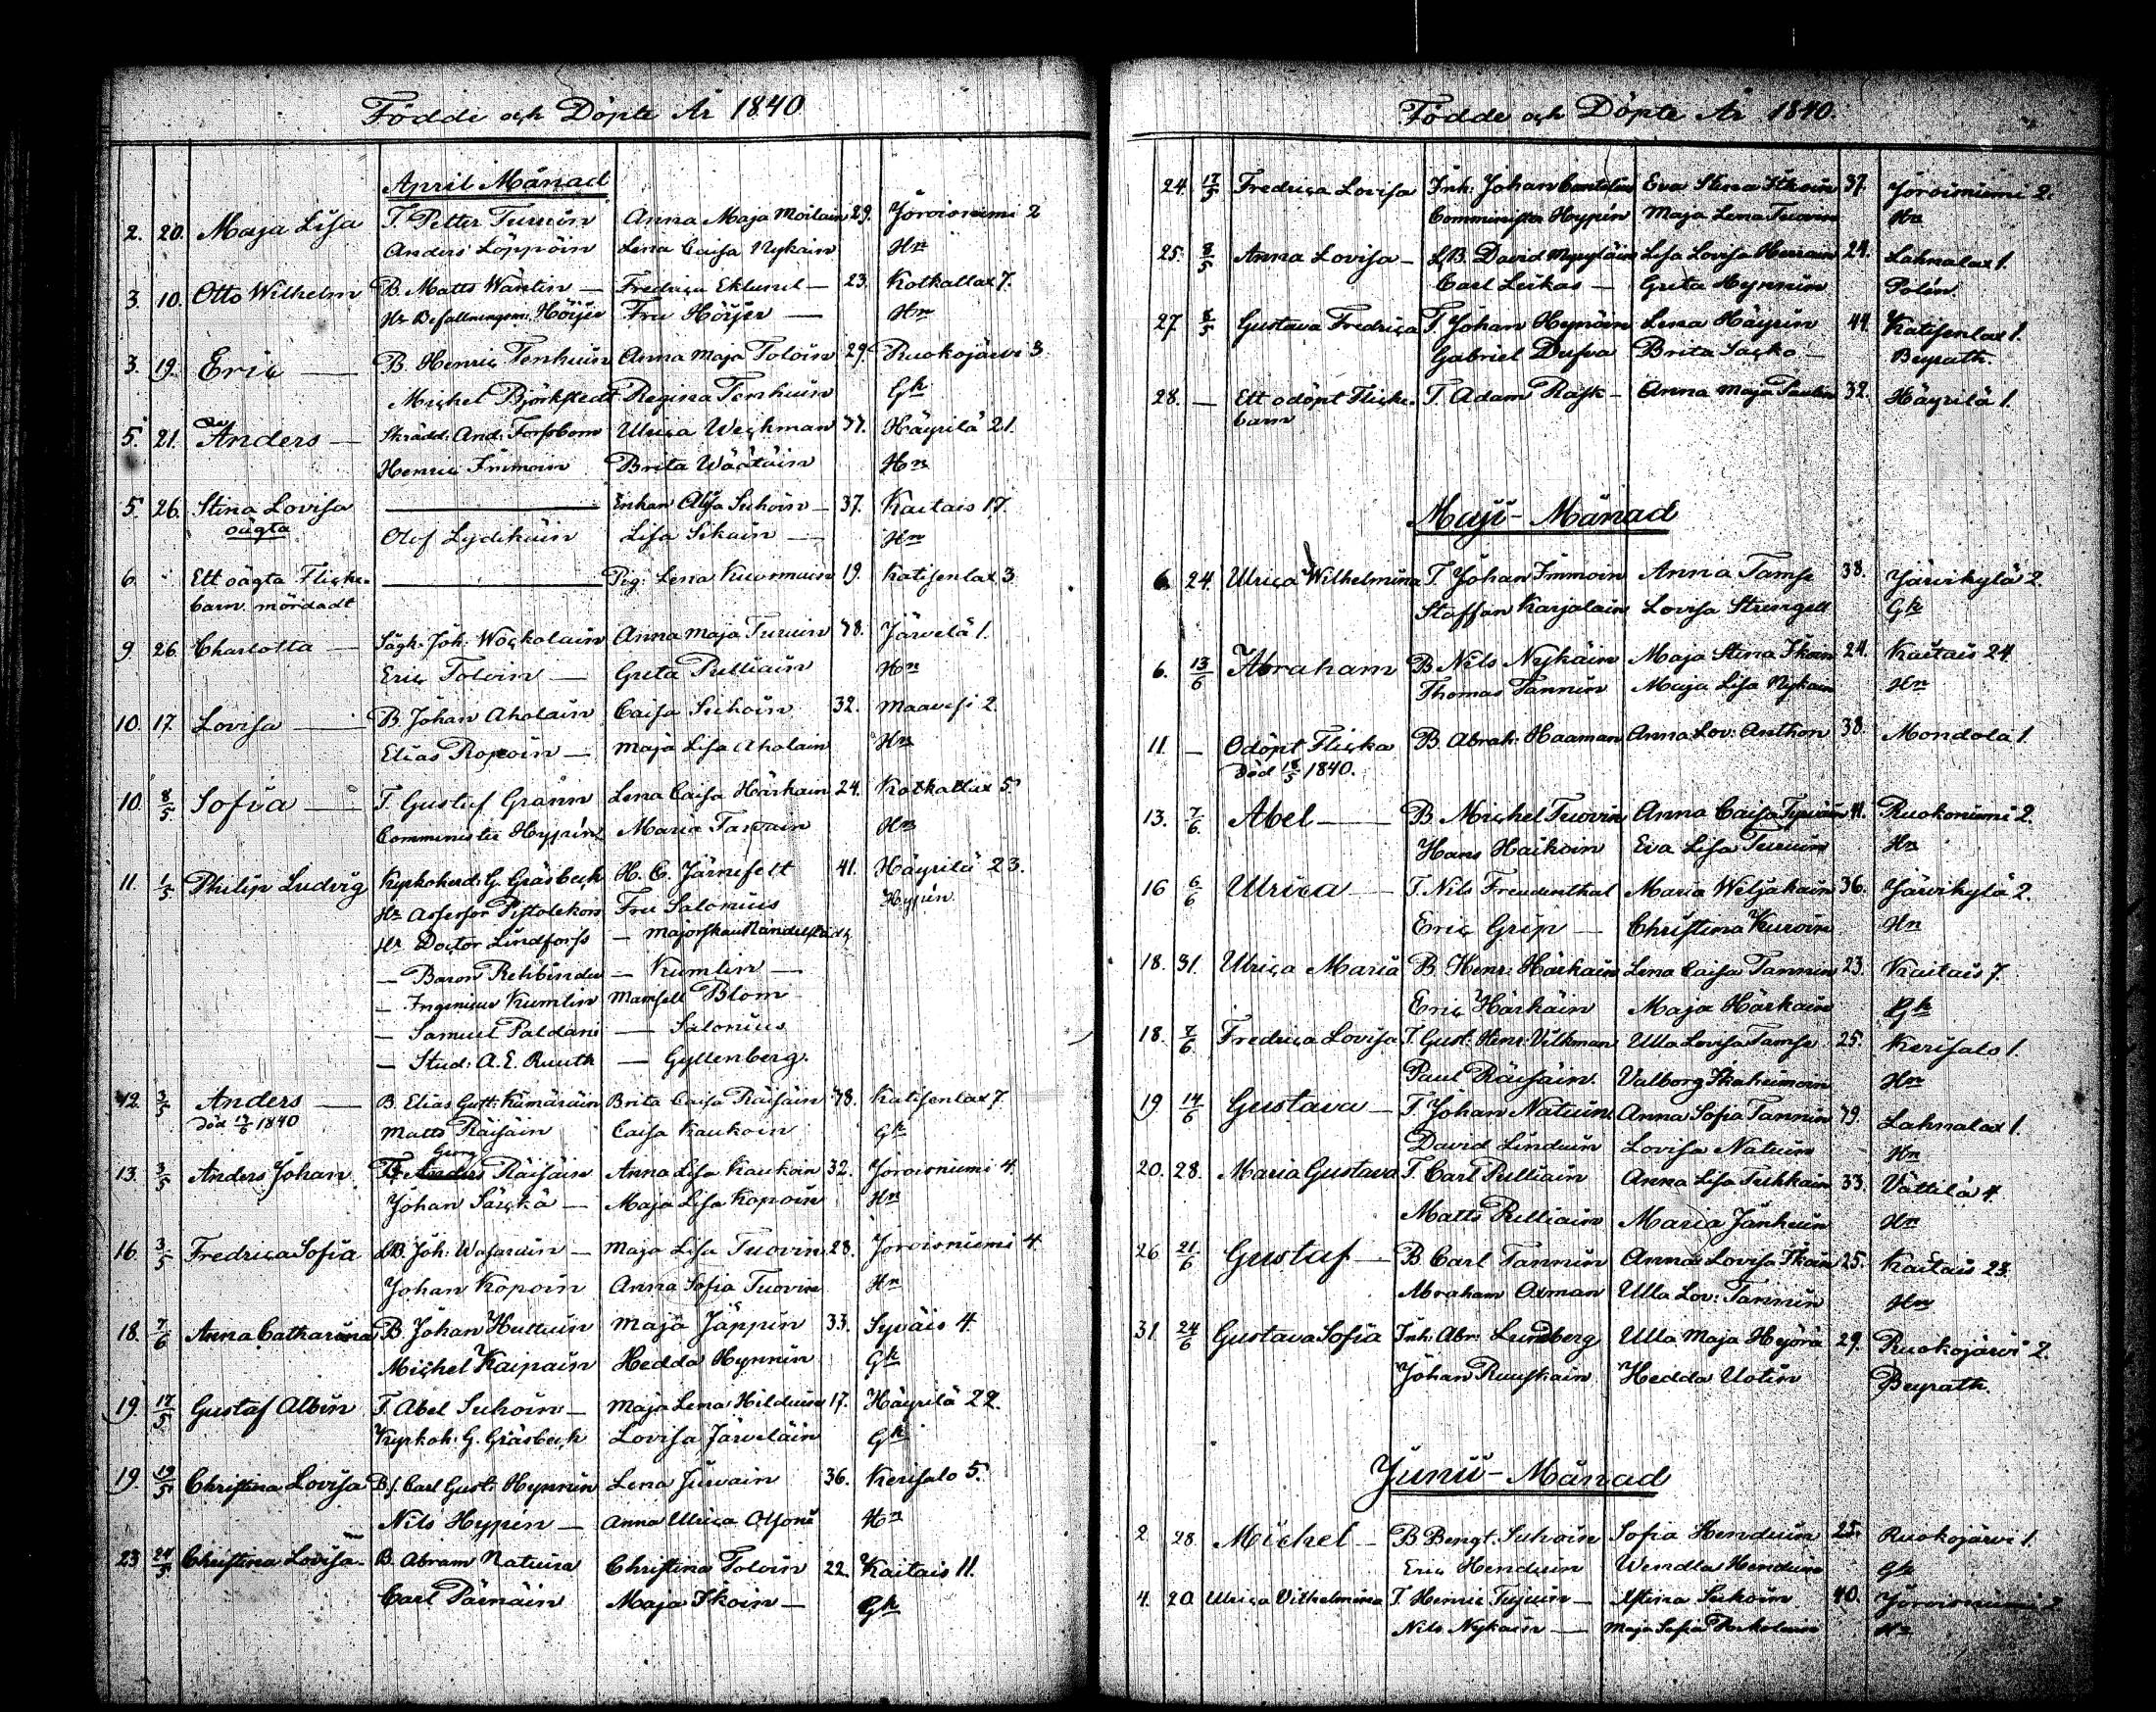 Födde och Döpte År 1840
April Månad
2. 20. Maja Lisa T. Petter Turuin Anna Maja Moilain 29. Joroisniemi 2
Anders Löppöin Lena Caisa Nykäin Hn
3. 10. Otto Wilhelm B. Matts Wäntin — Fredrica Eklund — 23. Kotkallax 7.
Hr Befallningsm: Höijer Fru Höijer — Hn
3. 19. Eric — B. Henric Tenhuin Anna Maja Toloin 29. Ruokojärvi 3
Michel Björkstedt Regina Tenhuin Gk
5. 21. Anders — Skrädd: And: Forsbom Ulrica Weckman 37. Häyrilä 21.
Henric Immoin Brita Väätäin Hn
5. 26. Stina Lovisa — Enkan Alisa Suhoin — 37. Kaitais 17.
oägta Olof Lydikäin Lisa Sikain — Hn
6. Ett oägta Flicke- — Pig: Lena Kuormuin 19. Katisenlax 3.
barn mördadt
9. 26. Charlotta — Sågk: Joh: Wockolain Anna Maja Turuin 38. Järvelä 1.
Eric Toloin — Greta Pulliain Hn
10. 17. Lovisa — B. Johan Aholain Caisa Suhoin 32. Maavesi 2.
Elias Ropoin — Maja Lisa Aholain Hn
10. 8/5 Sofia — T. Gustaf Grann Lena Caisa Härkäin 24. Kotkatlax 5.
Comminister Hypén Maria Tarvain Hn
11. 1/5 Philip Ludvig Kyrkoherd: G. Gräsbeck H. C. Järnefelt 41. Häyrilä 23.
Hr Assessor Pistolekors Fru Salonius Hypén
Hr Doctor Lindforss — Majorskan Nandelstadt
— Baron Rehbinder — Kumlin —
— Ingenieur Kumlin Mamsell Blom
— Samuel Paldani — Salonius
— Stud: A. E. Ruuth — Gyllenberg.
12. 3/5 Anders — B. Elias Gust: Kämäräin Brita Caisa Räisäin 38. Katisenlax 7.
Död 17/6 1840 Matts Räisäin Caisa Kaukoin Gk
Georg
13. 3/5 Anders Johan T. Anders Räisäin Anna Lisa Kaukoin 32. Joroisniemi 4.
Johan Särkä — Maja Lisa Kopoin Hn
16. 3/5 Fredrica Sofia LB. Joh: Wasaruin — Maja Lisa Tuovin 28. Joroisniemi 4.
Johan Kopoin Anna Sofia Tuovin Hn
18. 7/6 Anna Catharina B. Johan Huttuin Maja Jäppin 33. Syväis 4.
Michel Kaipain Hedda Hynnin Gk
19. 17/5 Gustaf Albin T. Abel Suhoin — Maja Lena Hilduin 17. Häyrilä 22.
Kyrkoh: G. Gräsbeck Lovisa Järveläin Gk
19. 19/5 Christina Lovisa Bs. Carl Gust: Hynnin Lena Jurvain 36. Kerisalo 5.
Nils Hypén — Anna Ulrica Hn
23. 24/5 Christina Lovisa — B. Abram Natuin Christina Toloin 22. Kaitais 11.
Carl Pärnäin Maja Ikoin — Gk
Födde och Döpte År 1840.
24. 17/5 Fredrica Lovisa Inh: Johan Eva Stina Ikoin 37. Joroisniemi 2.
Comminister Hypén Maja Lena Tuovin Hn
25. 8/5 Anna Lovisa — LB. David Myryläin Lisa Lovisa 24. Lahnalax 1.
Carl Leikas — Greta Hynnin Polén.
27. 8/5 Gustava Fredrica T. Johan Hynöin Lena Häyrin 44. Katisenlax 1.
Gabriel Dufva Brita Sacko — Beyrath.
28. — Ett odöpt Flicke- T. Adam Rask — Anna Maja Paulin 32. Häyrilä 1.
barn
Maji-Månad
6. 24. Ulrica Wilhelmina T. Johan Immoin Anna Tamse 38. Järvikylä 2.
Staffan Karjalain Lovisa Strengell Gk
6. 13/6 Abraham B. Nils Nykäin Maja Stina Ikoin 24. Kaitais 24
Thomas Tannin Maja Lisa Nykain Hn
11. — Odöpt Flicka B. Abrah: Haaman Anna Lov: Anthon 38. Mondola 1.
Död 18/5 1840.
13. 7/6. Abel — B. Michel Tuovin Anna Caisa 41. Ruokoniemi 2.
Hans Haikoin Eva Lisa Turuin Hn
16 6/6 Ulrica — T. Nils Freudenthal Maria Weljakain 36. Järvikylä 2.
Eric Grip — Christina Kuroin Hn
18. 31. Ulrica Maria B. Henr: Härkäin Lena Caisa Tannin 23. Kaitais 7.
Eric Härkäin Maja Härkäin Gk
18. 7/6. Fredrica Lovisa T. Gust: Henr: Vilkman Ulla Lovisa Tamse 25. Kerisalo 1.
Paul Räisäin Valborg Ikäheimoin Hn
19. 14/6 Gustava — T. Johan Natuin Anna Sofia Tannin 39. Lahnalax 1.
David Linduin Lovisa Natuin Hn
20. 28. Maria Gustava T. Carl Pulliain Anna Lisa Tuhkain 33. Vättilä 4.
Matts Pulliain Maria Jänhuin Hn
26 21/6 Gustaf — B. Carl Tannin Anna Lovisa Ikoin 25. Kaitais 23.
Abraham Axman Ulla Lov: Tannin Hn
31. 24/6 Gustava Sofia Inh: Abr: Lundberg Ulla Maja Hyörä 29. Ruokojärvi 2.
Johan Ruuskain Hedda Uotin Beyrath.
Junii-Månad
2. 28. Michel — B. Bengt Suhoin Sofia Henduin 25. Ruokojärvi 1.
Eric Henduin Wendla Henduin Gk
4. 20. Ulrica Vilhelmina T. Henric — Stina Suhoin 40. Joroisniemi 2
Nils Nykäin — Maja Sofia Hn